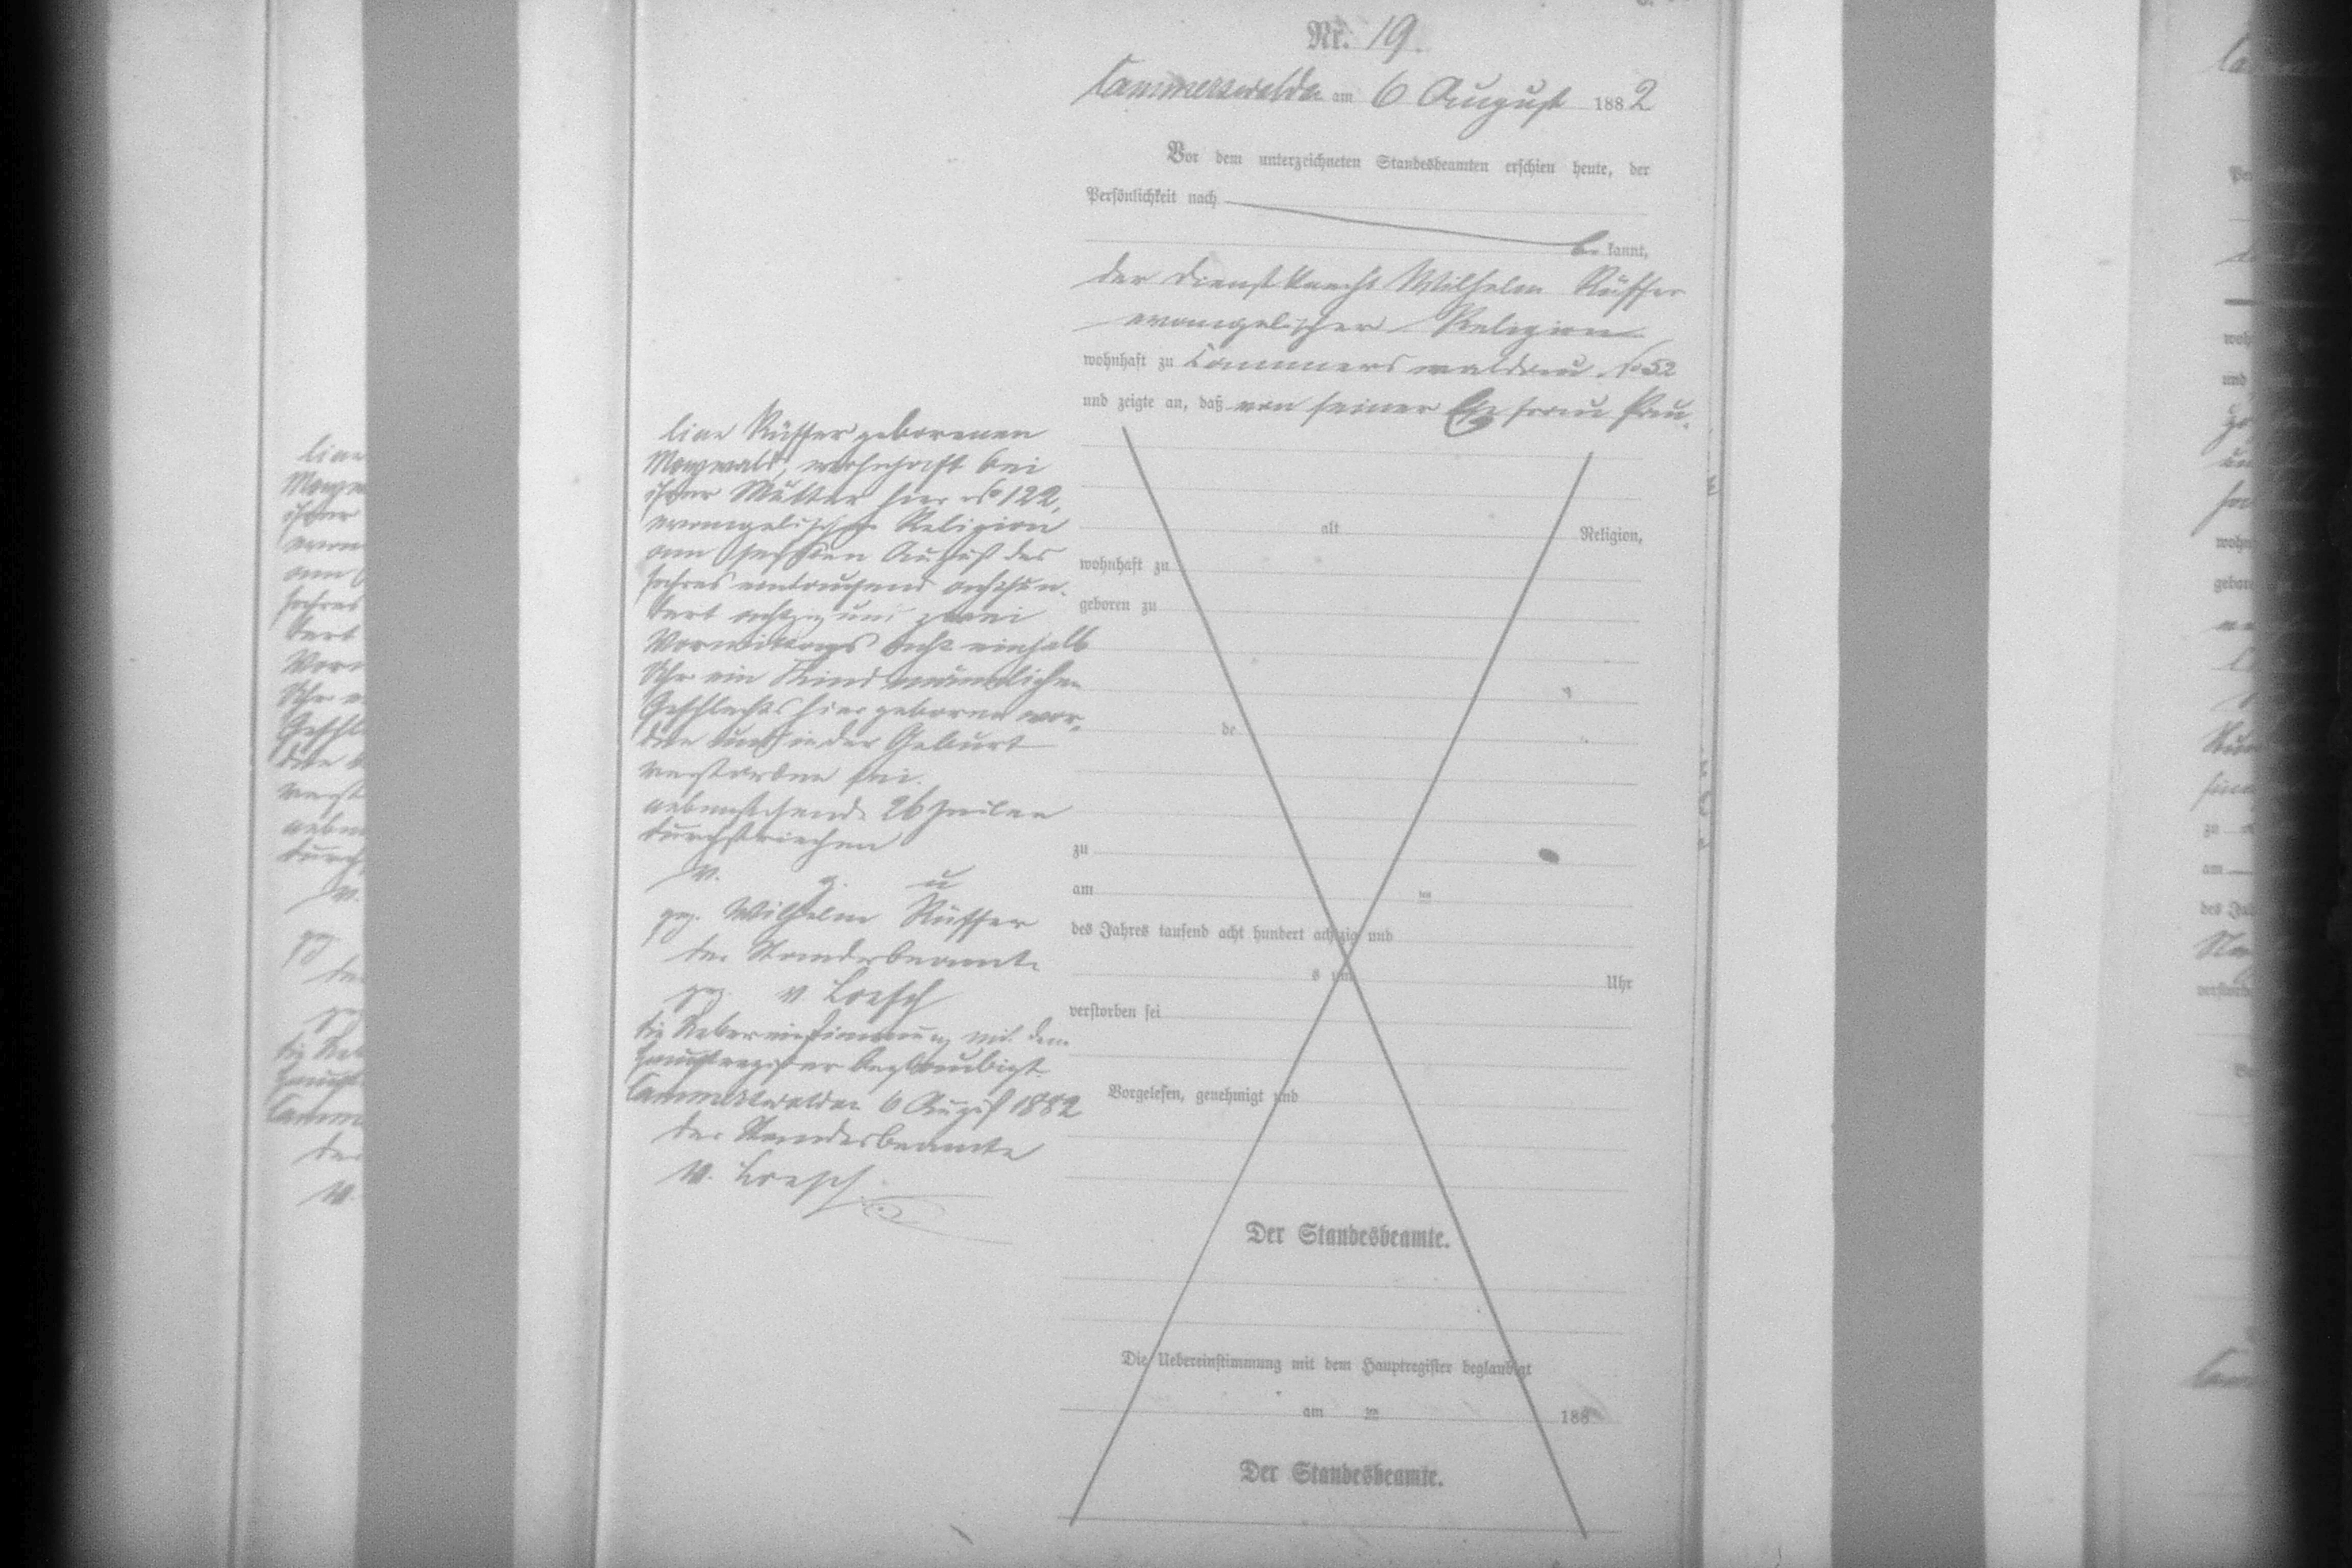 Nr. 19.
Cammerswaldau am 6 August 1882
Vor dem unterzeichneten Standesbeamten erschien heute, der
Persönlichkeit nach
be kannt,
der Dienstknecht Wilhelm Rüffer
evangelischer Religion
wohnhaft zu Cammerswaldau No 52
und zeigte an, daß von seiner Ehefrau Pau-
line Rüffer geborenen
wohnhaft bei
ihrer Mutter hier No 122,
evangelischer Religion
am sechsten August des
Jahres eintausend achthun-
dert achtzig und zwei
Vormittags acht einhalb
Uhr ein Kind männlichen
Geschlechts hier geboren wor-
den und in der Geburt
verstorben sei.
nebenstehende 26 Zeilen
durchstrichen
v. g. u
gez. Wilhelm Rüffer
der Standesbeamte
gez. v Loesch
die Uebereinstimmung mit dem
Hauptregister beglaubigt.
Cammerswaldau 6 August 1882
der Standesbeamte
v. Loesch
alt Religion,
wohnhaft zu
geboren zu
de
zu
am ten
des Jahres tausend acht hundert achtzig und
s um Uhr
verstorben sei
Vorgelesen, genehmigt und
Der Standesbeamte.
Die Uebereinstimmung mit dem Hauptregister beglaubigt
am ten 188
Der Standesbeamte.